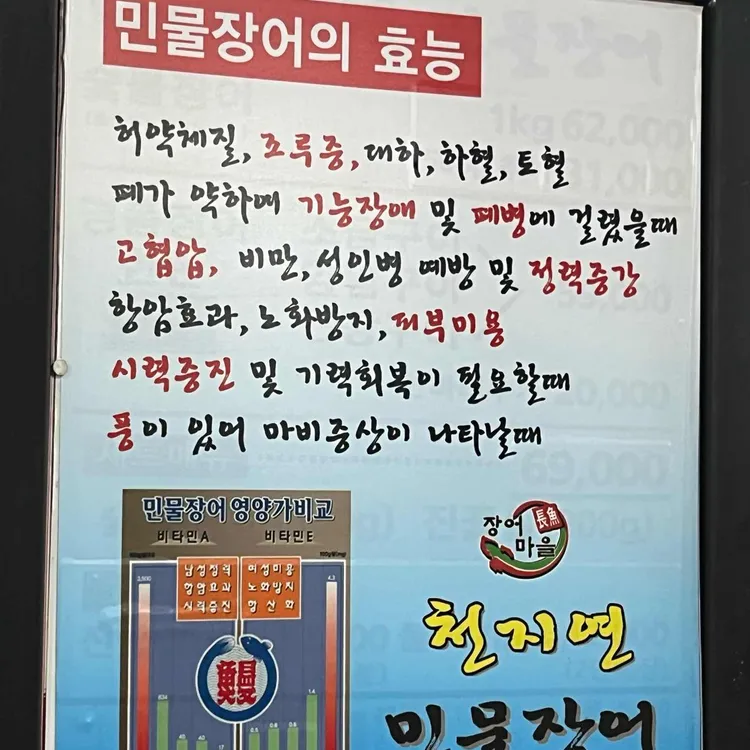 민물장어의 효능
허약체질, 조루증, 대하, 하혈, 토혈
폐가 약하여 기능장애 및 폐병에 걸렸을때
고혈압, 비만, 성인병 예방 및 정력증강
항암효과, 노화방지, 피부미용
시력증진 및 기력회복이 필요할때
풍이 있어 마비증상이 나타날때
민물장어 영양가비교
비타민A 비타민E
남성정력 여성미용
항암효과 노화방지
시력증진 항산화
4.3
634
1.4
40 40 17
0.5 0.6 0.6
鰻
장어 長魚
마을
천지연
민물장어
1kg 62,000
69,000